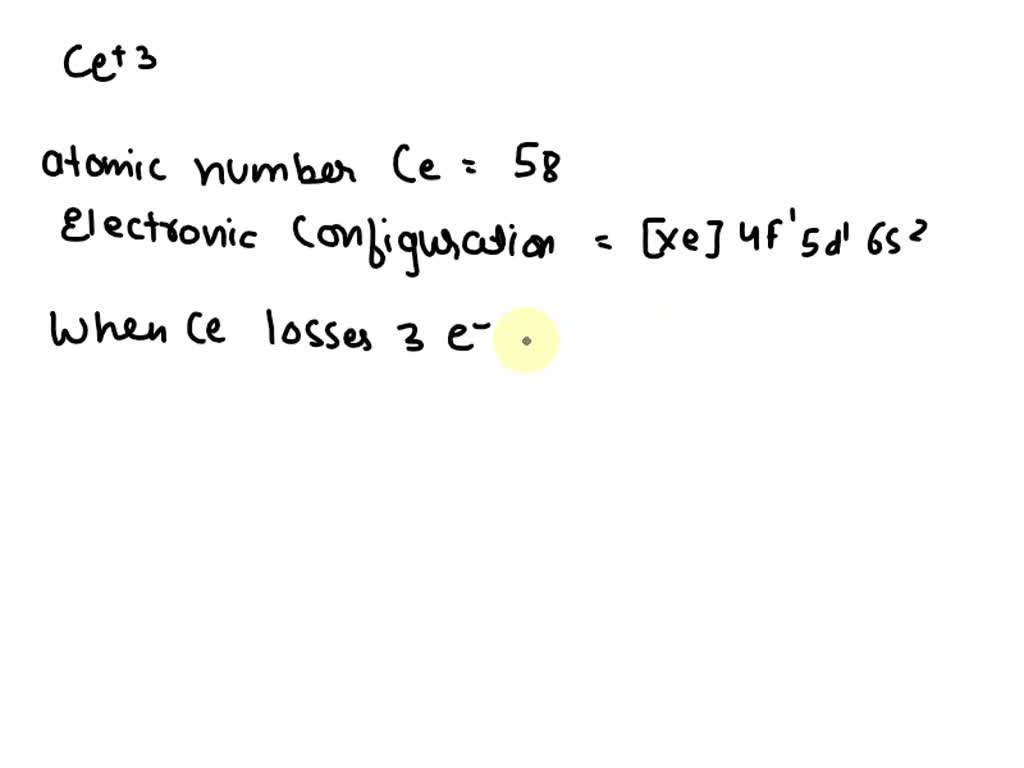 Ce+3
atomic number Ce = 58
Electronic Configuration = [xe] 4f¹ 5d¹ 6s²
When Ce losses 3 e⁻